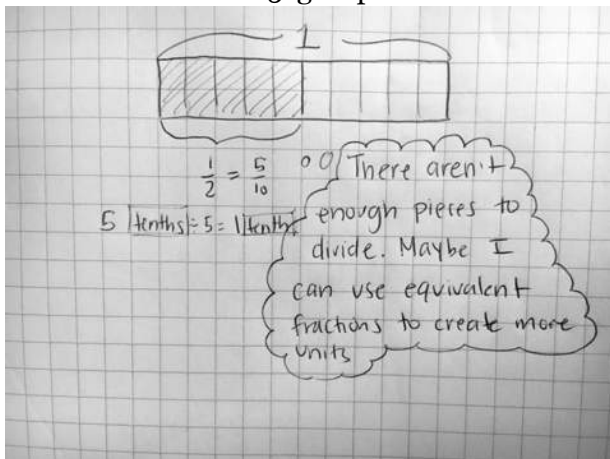 1
1/2 = 5/10
5 tenths ÷ 5 = 1 tenth
There aren't
enough pieces to
divide. Maybe I
can use equivalent
fractions to create more
units